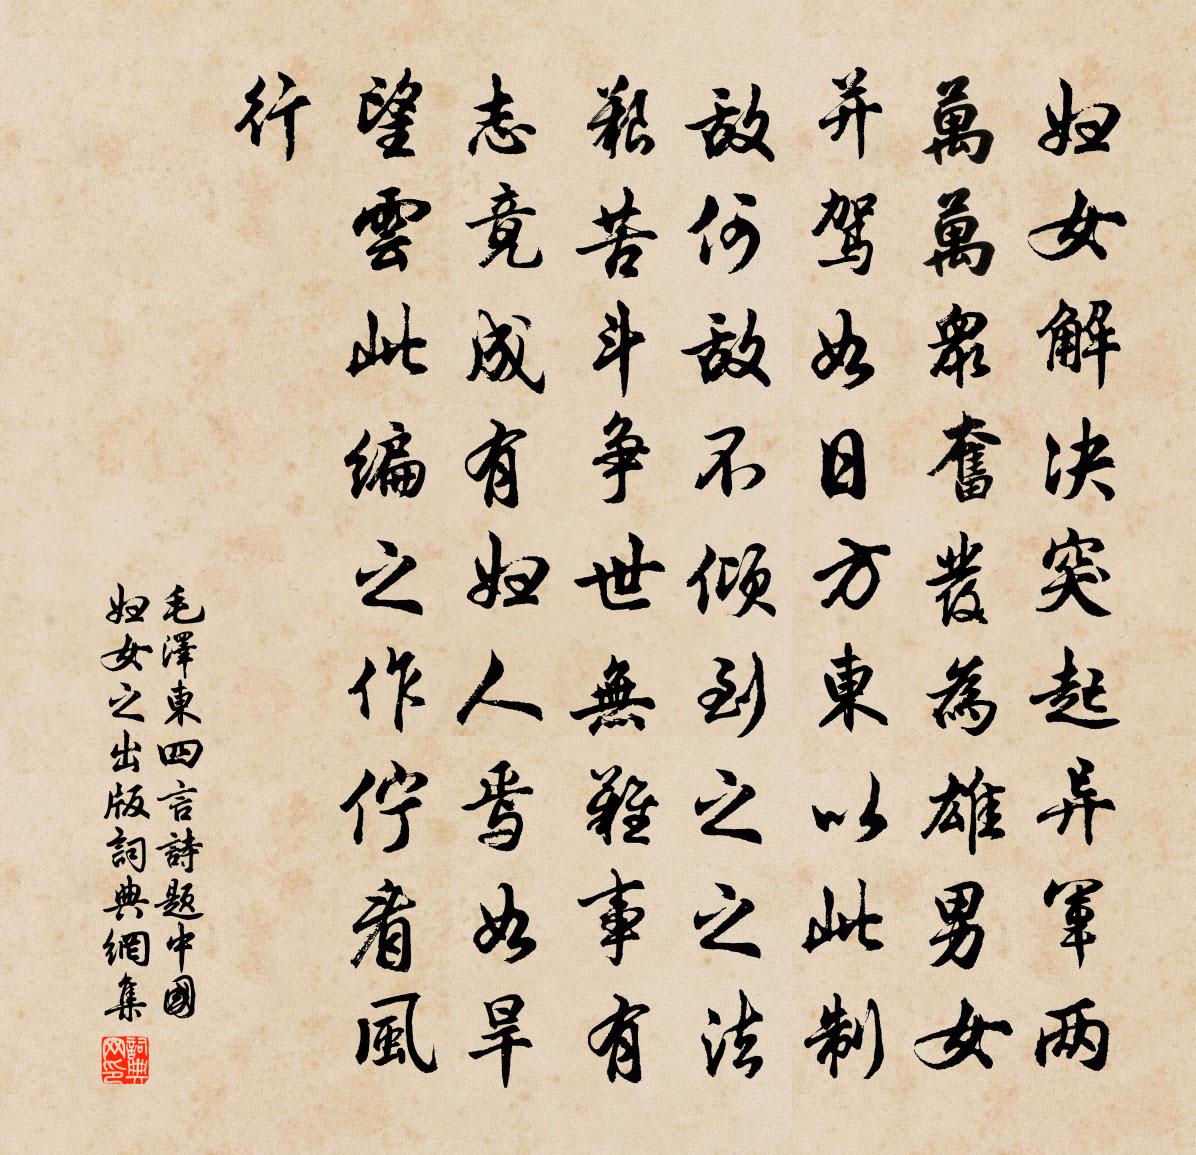 妇女解決突起异軍两
萬萬眾奮發為雄男女
并駕如日方東以此制
敌何敌不傾到之之法
艱苦斗争世無難事有
志竟成有妇人焉如旱
望雲此编之作佇看風
行
毛澤東四言詩题中國
妇女之出版詞典網集
詞典
网印